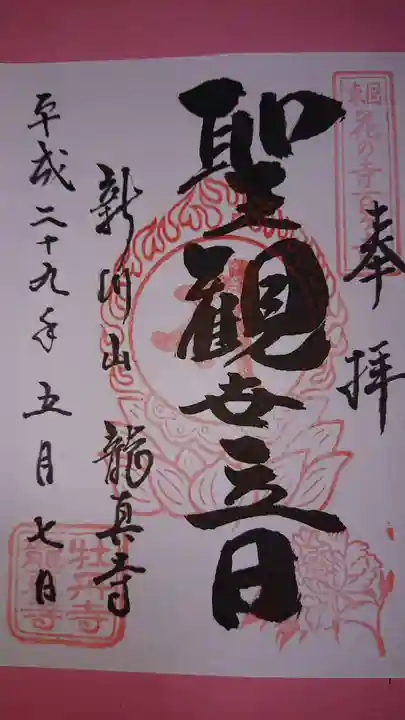 東国花の寺百
奉拝
聖観世音
新開山 龍真寺
平成二十九年五月七日
牡丹寺
龍真寺